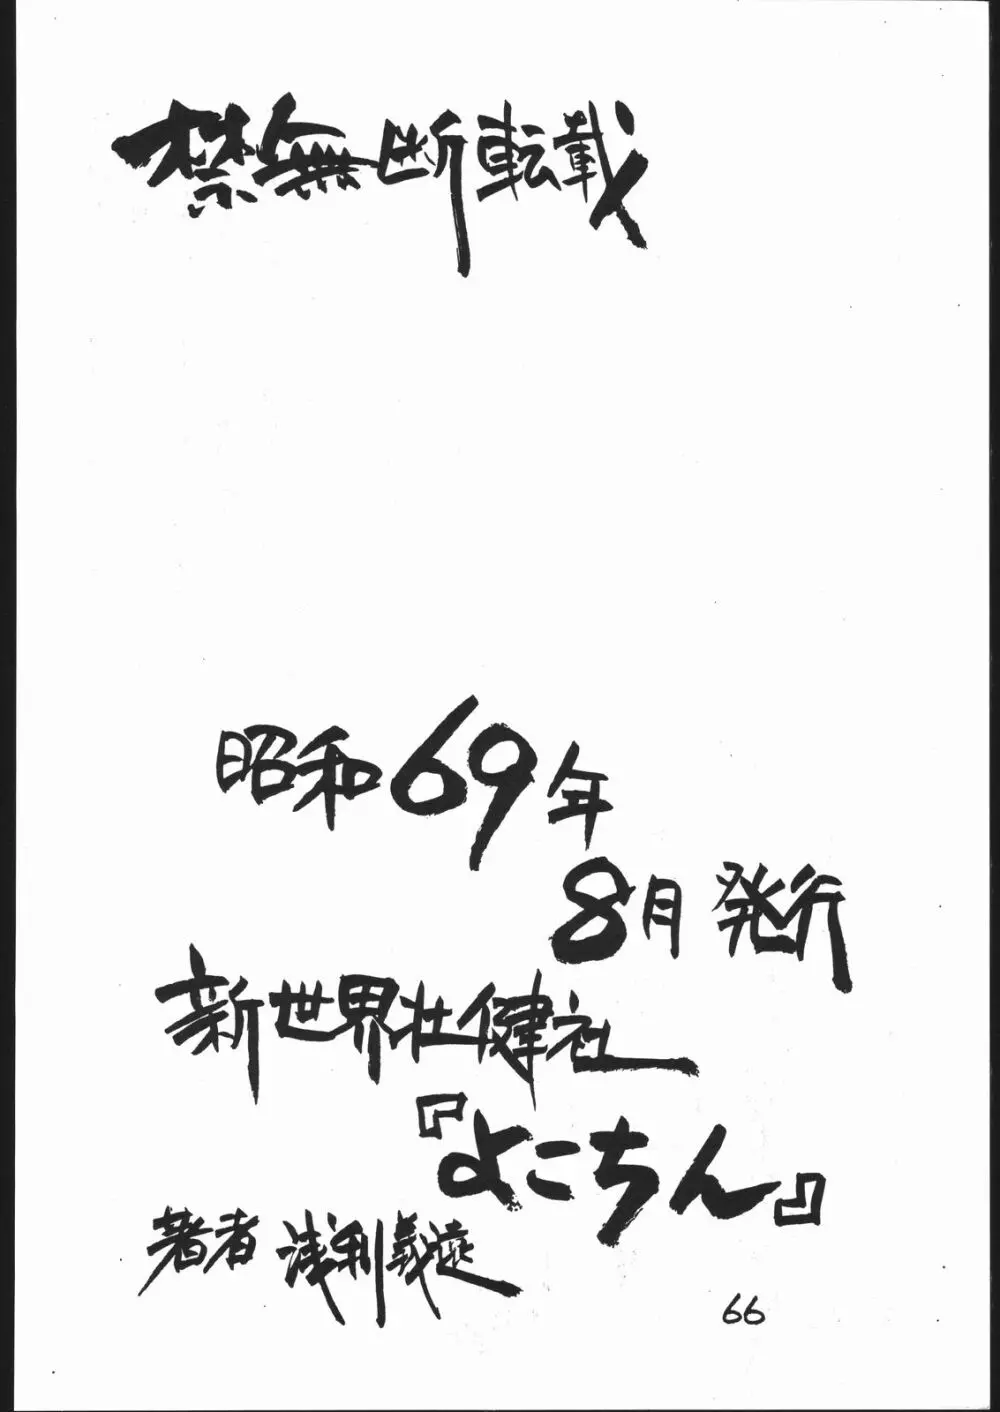 禁無断転載
昭和69年
8月発行
新世界壮健社
『よこちん』
著者 浅利義遠
66